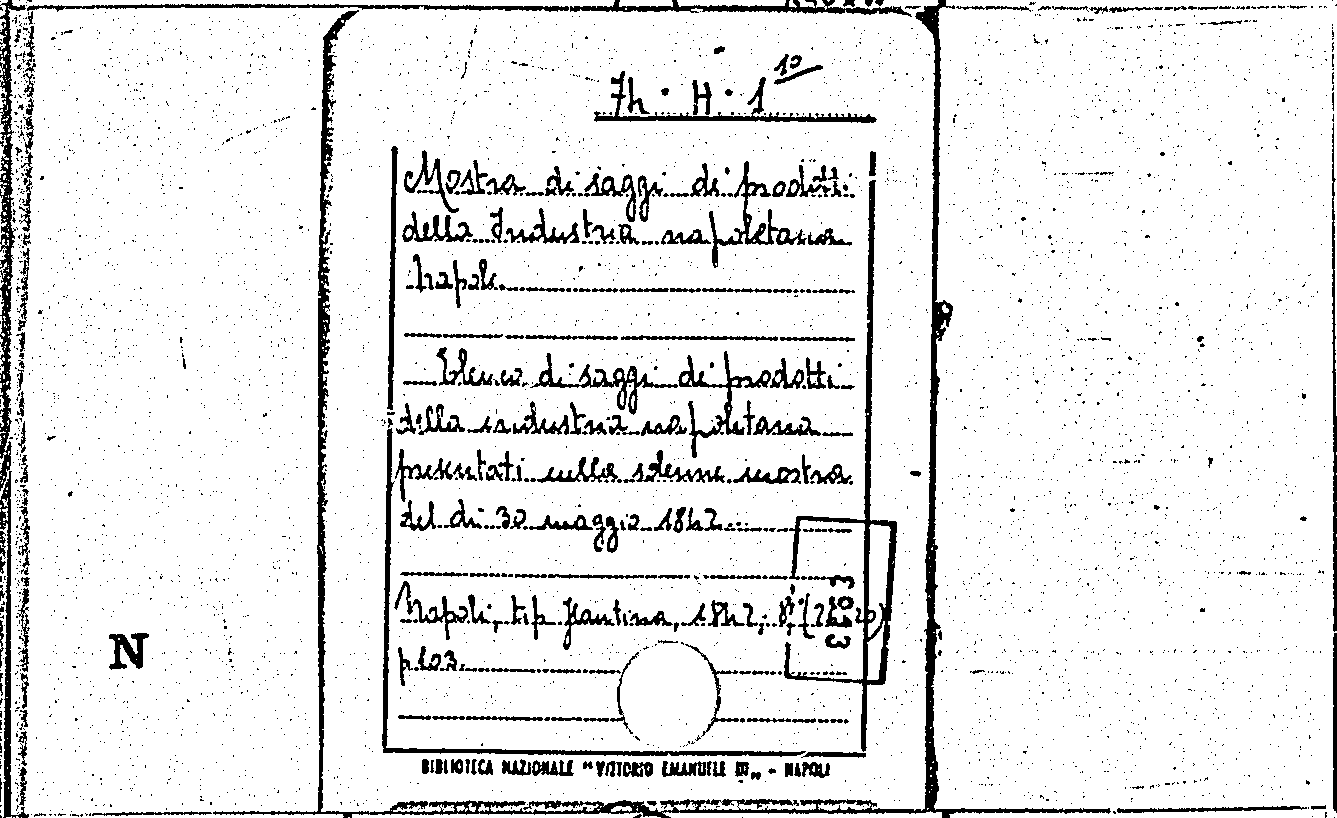 7h · H · 1 10
Mostra di saggi di prodotti
della Industria napoletana
Napoli.
Elenco di saggi di prodotti
della industria napoletana
presentati nella solenne mostra
del dì 30 maggio 1842...
Napoli, tip. Flautina, 1842; 8°
p 103.
N
BIBLIOTECA NAZIONALE "VITTORIO EMANUELE III„ - NAPOLI